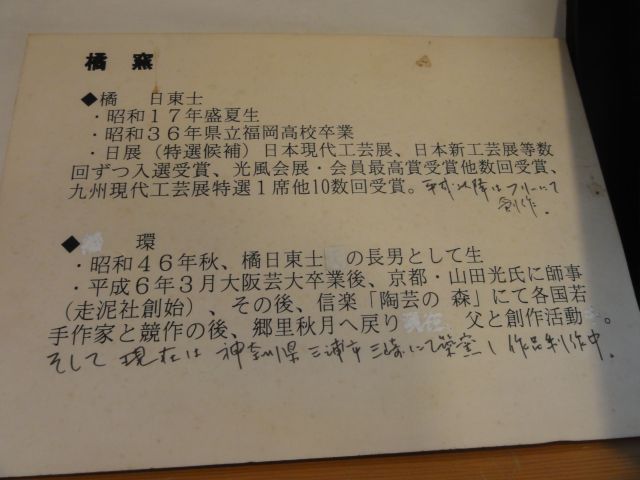 橘 窯
◆橘 日東士
・昭和17年盛夏生
・昭和36年県立福岡高校卒業
・日展（特選候補）日本現代工芸展、日本新工芸展等数
回ずつ入選受賞、光風会展・会員最高賞受賞他数回受賞、
九州現代工芸展特選1席他10数回受賞。平成以降はフリーにて
創作。
◆橘 環
・昭和46年秋、橘日東士の長男として生
・平成6年3月大阪芸大卒業後、京都・山田光氏に師事
（走泥社創始）、その後、信楽「陶芸の 森」にて各国若
手作家と競作の後、郷里秋月へ戻り 現在、父と創作活動。
そして現在は神奈川県三浦市三崎にて築窯し作品制作中。